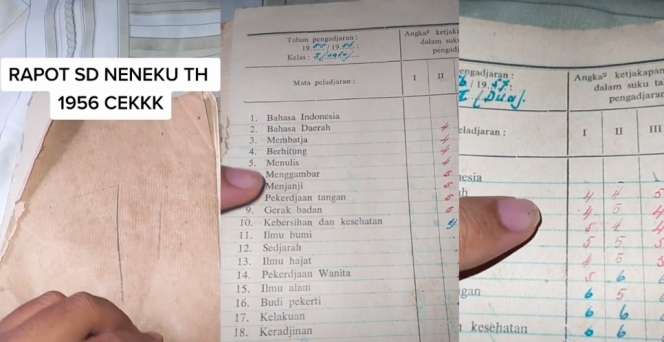 RAPOT SD NENEKU TH
1956 CEKKK
Tahun pengadjaran :
Kelas :
Angka² ketjak
dalam suku
pengadj
Mata peladjaran :
I II
1. Bahasa Indonesia
2. Bahasa Daerah
3. Membatja
4. Berhitung
5. Menulis
Menggambar
Menjanji
Pekerdjaan tangan
9. Gerak badan
10. Kebersihan dan kesehatan
11. Ilmu bumi
12. Sedjarah
13. Ilmu hajat
14. Pekerdjaan Wanita
15. Ilmu alam
16. Budi pekerti
17. Kelakuan
18. Keradjinan
engadjaran :
(Dua).
Angka² ketjakapan
dalam suku ta
pengadjaran
eladjaran :
I II III
esia
h
4 4 5
4 5 4
5 4 4
5 5 5
4 5 5
5 6
gan 6 5
6 6
kesehatan 6 6